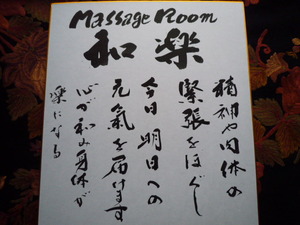 Massage Room
和楽
精神や肉体の
緊張をほぐし
今日明日への
元氣を届けます
心が和み身体が
楽になる